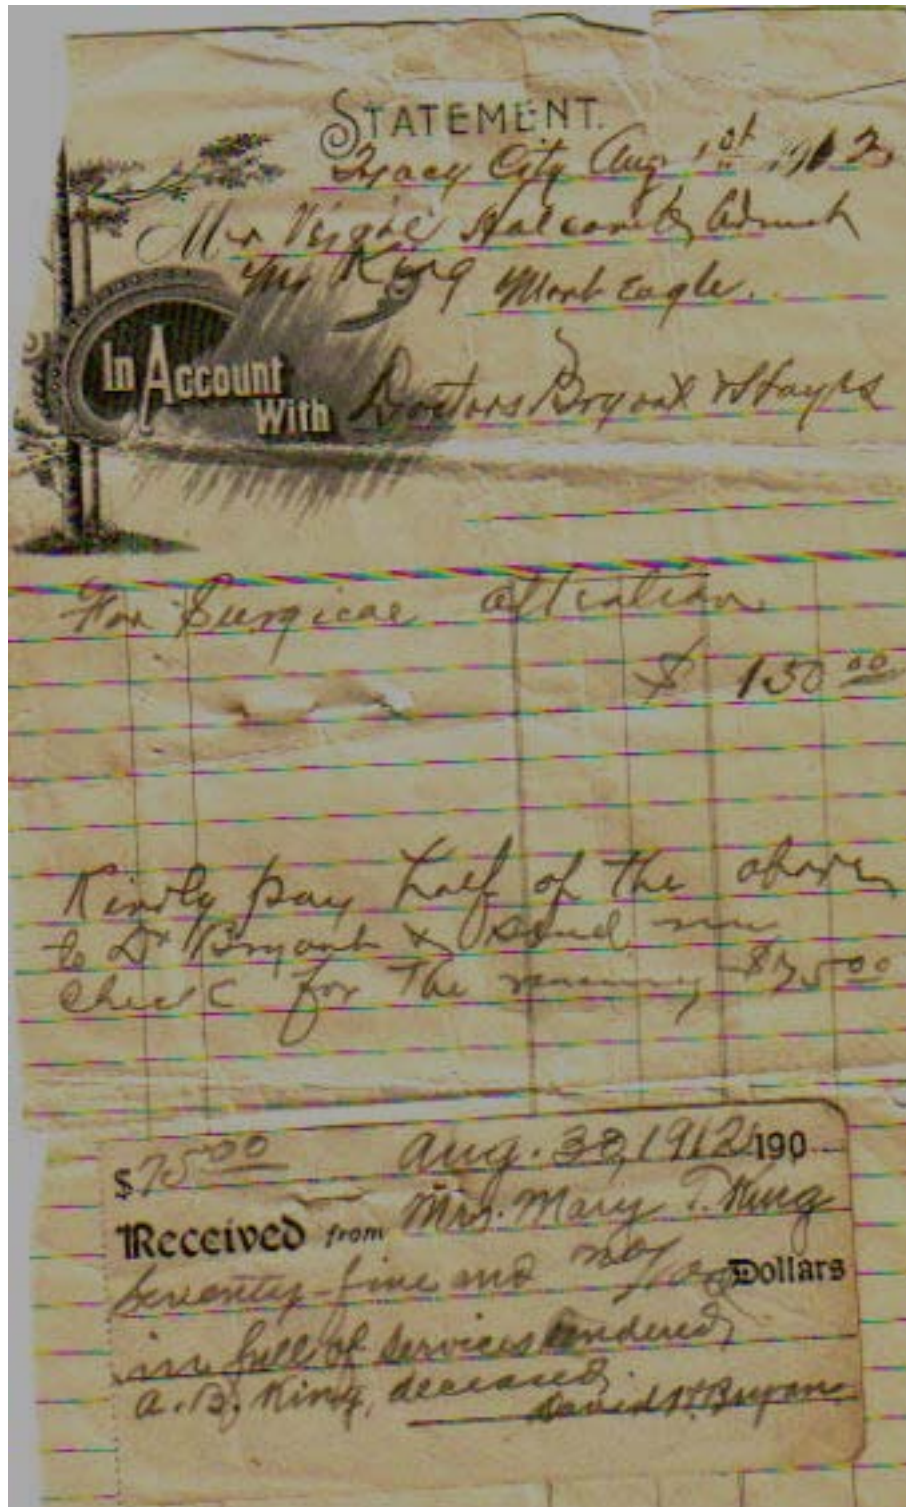 STATEMENT.
Tracy City Aug 1st 1912
Mr Virgil Halcomb, Admst
Mr King Mont Eagle.
In Account
With Doctors Bryant & Hayes
For Surgical attention
$ 150 00
Kindly pay half of the above
to Dr Bryant & send me
check for the remaining $75 00
$75 00 Aug. 30, 1912 190
Received from Mrs. Mary T. King
Seventy-five and no/100 Dollars
in full of services rendered
A. B. King, deceased
David H. Bryant